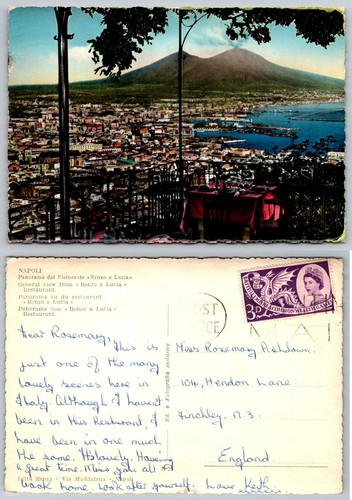 NAPOLI
Panorama dal Ristorante «Renzo e Lucia»
General view from «Renzo e Lucia»
Restaurant.
Panorama vu du restaurant
«Renzo e Lucia»
Panorama von «Renzo e Lucia»
Restaurant.
Dear Rosemary, This is
just one of the many
lovely scenes here in
Italy. Although I haven't
been in this Restaurant, I
have been in one much
the same. Its lovely. Having
a great time. Miss you all
back home. Look after yourself. Love Keth.
Miss Rosemary Ashdown.
104, Hendon Lane.
Finchley. N.3.
England.
OST
ICE
3D